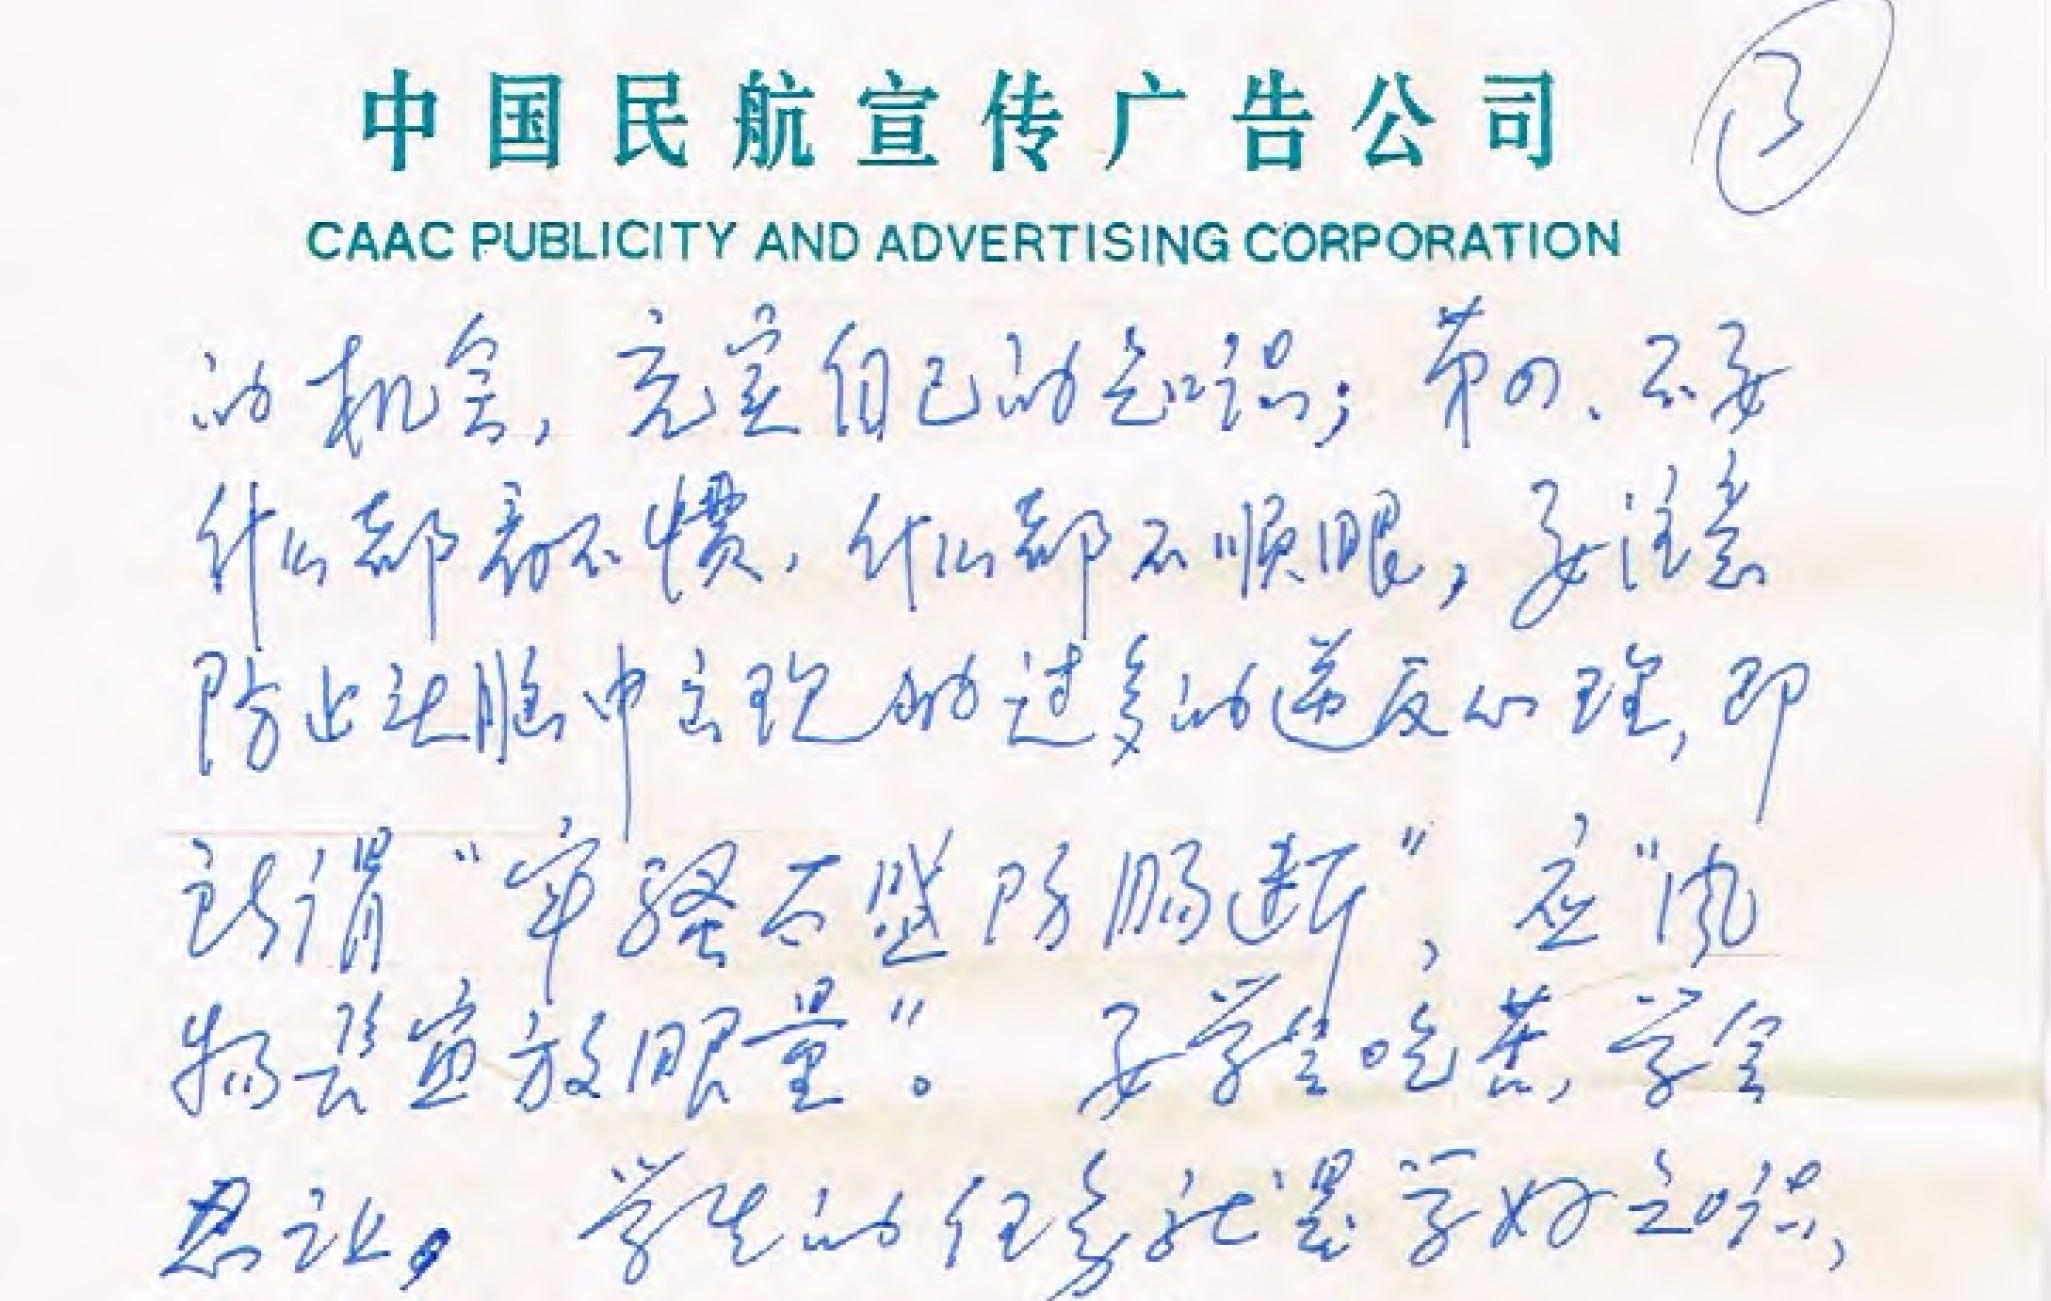 中国民航宣传广告公司
③
CAAC PUBLICITY AND ADVERTISING CORPORATION
的机会，充实自己的知识；第四、不要
什么都看不惯，什么都不顺眼，要注意
防止头脑中出现的过多的逆反心理，即
所谓“牢骚太盛防肠断”，应“风
物长宜放眼量”。要学会吃苦，学会
忍让，学生的任务就是学好知识，